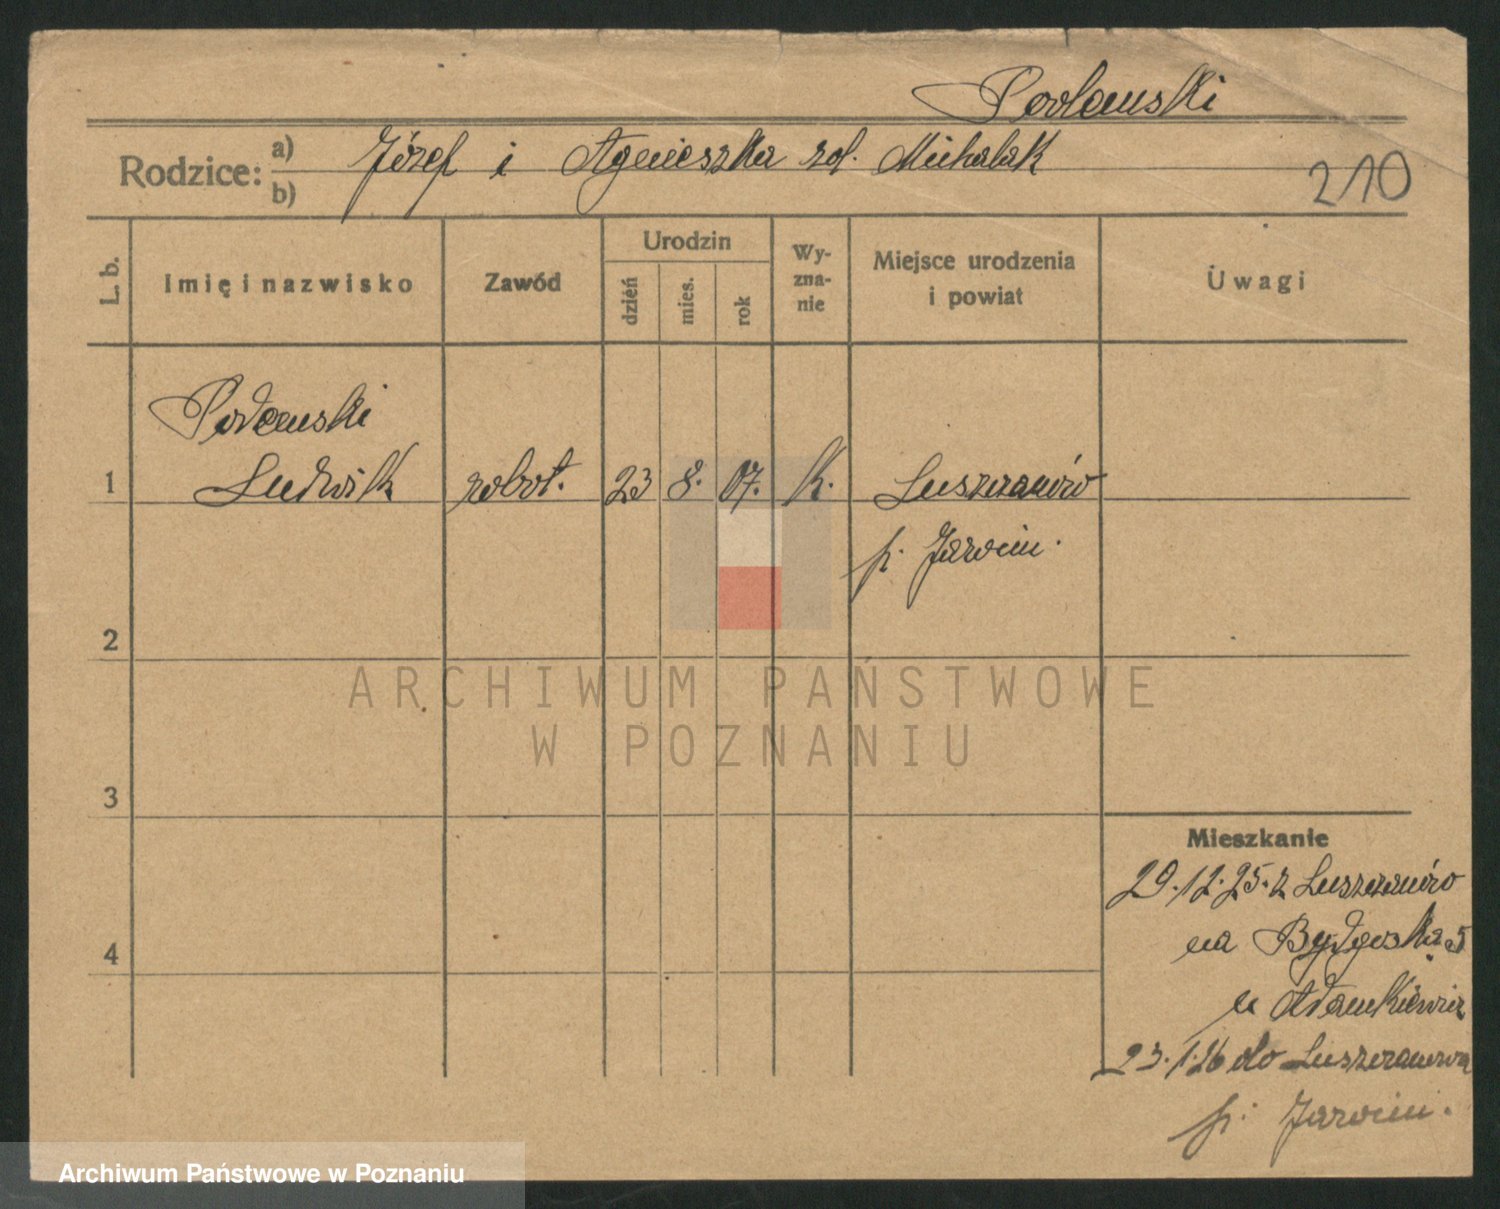 Podemski
Rodzice: a) Józef i Agnieszka rol. Michalak
b)
210
L. b.
Imię i nazwisko
Zawód
Urodzin
dzień
mies.
rok
Wy-
zna-
nie
Miejsce urodzenia
i powiat
Uwagi
Podemski
1 Ludwik robot. 23 8. 07. K. Luszczanów
p. Jarocin.
2
3
4
Mieszkanie
29.12.25. z Luszczanów
na Bydgoska 5
u Adamkiewicz
23.1.26 do Luszczanowa
p. Jarocin.
ARCHIWUM PAŃSTWOWE
W POZNANIU
Archiwum Państwowe w Poznaniu